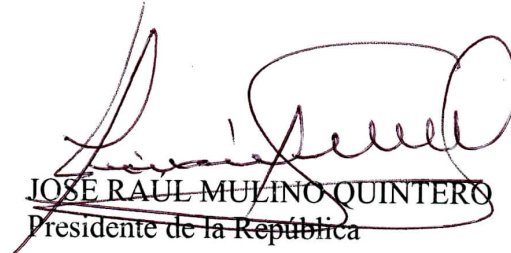 JOSÉ RAÚL MULINO QUINTERO
Presidente de la República